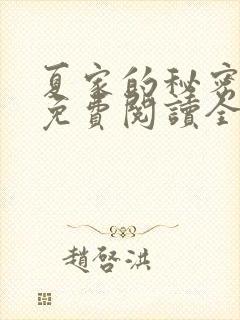 夏家的秘密
免費閱讀全
趙啓洪